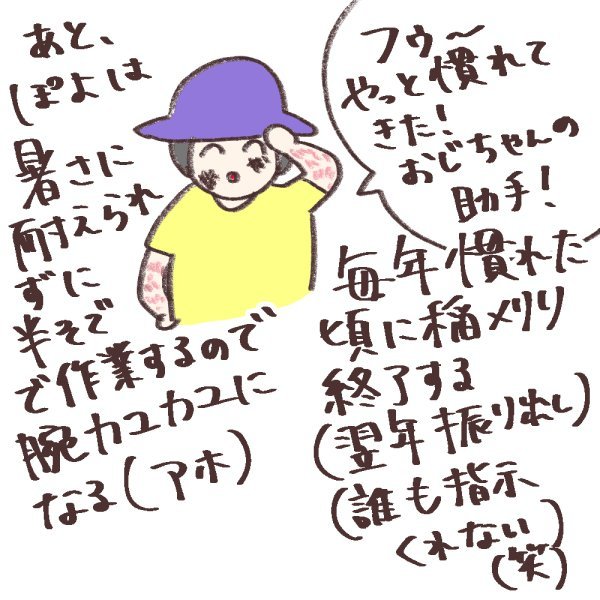 フウ〜
やっと慣れて
きた!
おじちゃんの
助手!
毎年慣れた
頃に稲メリリ
終了する
(翌年振り出し)
(誰も指示
くれない)
(笑)
あと、
ぽよは
暑さに
耐えられ
ずに
半そで
で作業するので
腕カユカユに
なる(アホ)